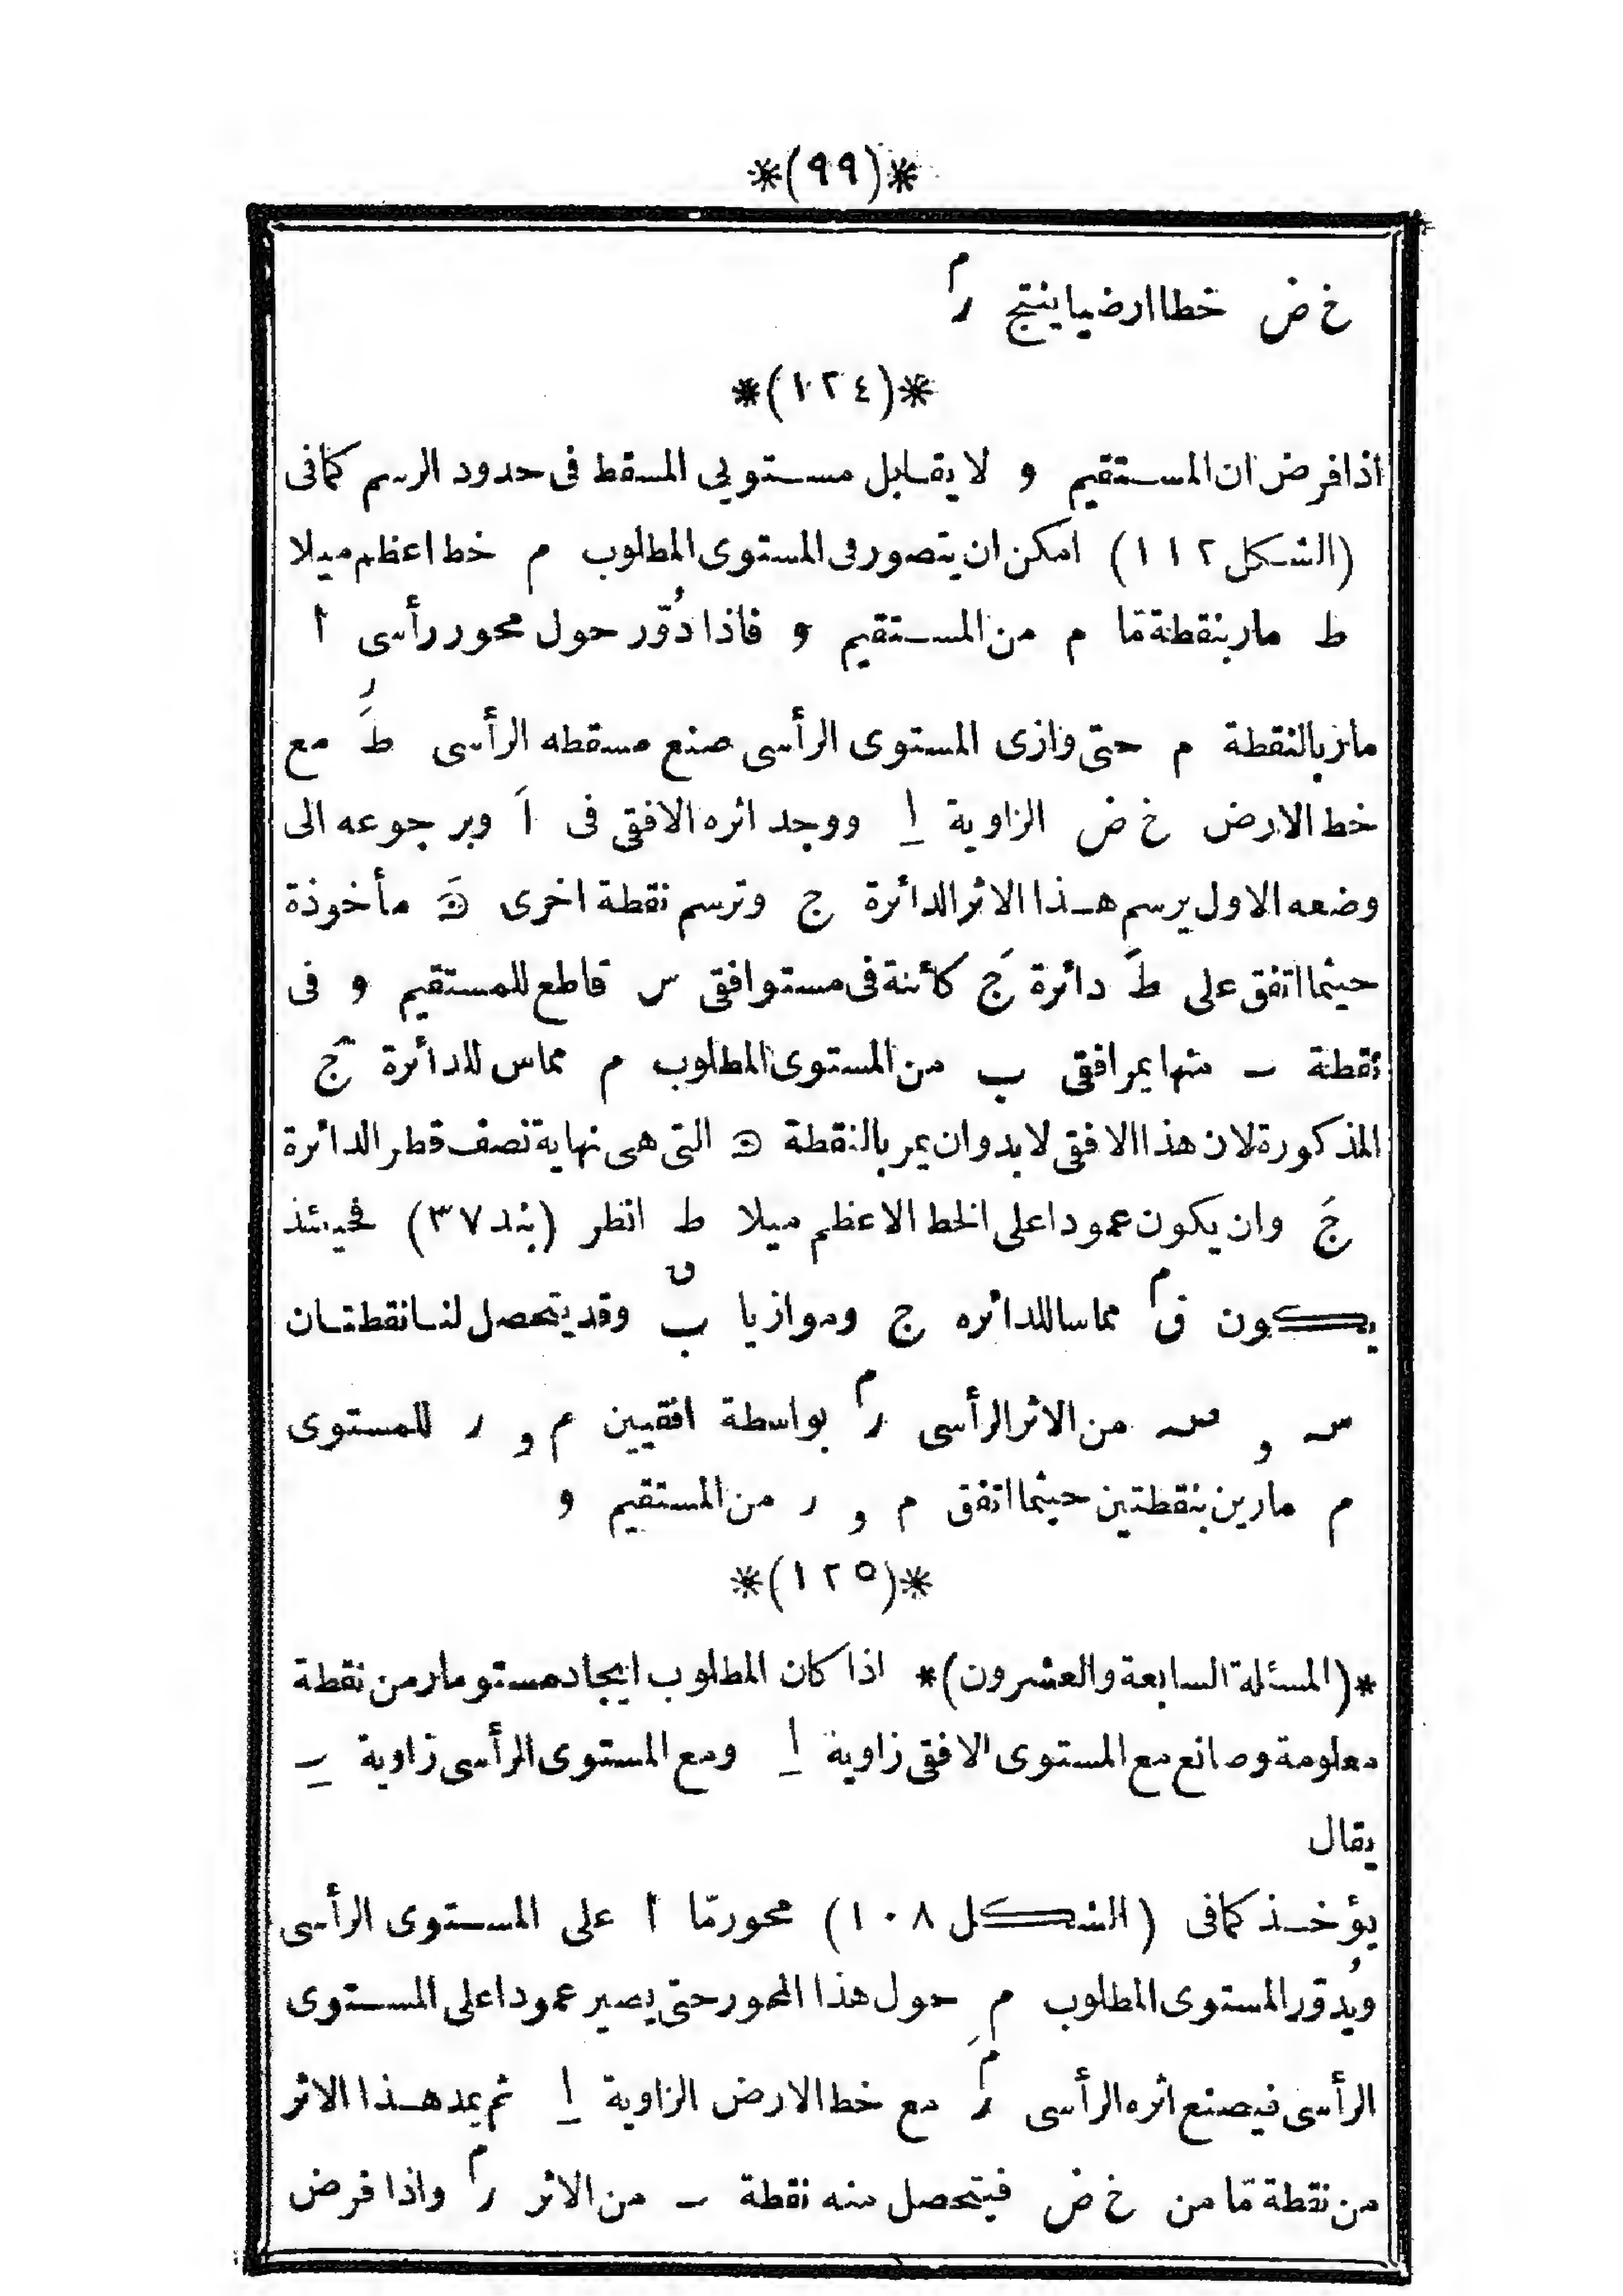 *(٩٩)*
خ ض خطا ارضيا ينتج ر م
*(١٢٤)*
اذا فرض ان المستقيم و لا يقابل مستويى المسقط فى حدود الرسم كما فى
(الشكل ١١٢) امكن ان يتصور فى المستوى المطلوب م خط اعظم ميلا
ط مار بنقطة مّا م من المستقيم و فاذا دُوّر حول محور رأسى أ
مار بالنقطة م حتى وازى المستوى الرأسى صنع مسقطه الرأسى طَ ر مع
خط الارض خ ض الزاوية ا ووجد اثره الافقى فى اَ وبرجوعه الى
وضعه الاول يرسم هذا الاثر الدائرة ج وترسم نقطة اخرى مأخوذة
حيثما اتفق على طَ دائرة جَ كائنة فى مستو افقى س قاطع للمستقيم و فى
نقطة ب منها يمر افقى ب من المستوى المطلوب م مماس للدائرة جَ
المذكورة لان هذا الافقى لا بد وان يمر بالنقطة التى هى نهاية نصف قطر الدائرة
جَ وان يكون عمودا على الخط الاعظم ميلا ط انظر (بند ٣٧) فحينئذ
يكون ق م مماسا للدائره ج وموازيا ب ق وقد يتحصل لنا نقطتان
س و من الاثر الرأسى ر م بواسطة افقيين م و ر للمستوى
م مارين بنقطتين حيثما اتفق م و ر من المستقيم و
*(١٢٥)*
*(المسئلة السابعة والعشرون)* اذا كان المطلوب ايجاد مستو مار من نقطة
معلومة وصانع مع المستوى الافقى زاوية ا ومع المستوى الرأسى زاوية ب
يقال
يؤخذ كما فى (الشكل ١٠٨) محور مّا أ على المستوى الرأسى
ويُدوّر المستوى المطلوب م حول هذا المحور حتى يصير عمودا على المستوى
الرأسى فيصنع اثره الرأسى ر م مع خط الارض الزاوية ا ثم يمد هذا الاثر
من نقطة مّا من خ ض فيتحصل منه نقطة ب من الاثر ر م واذا فرض